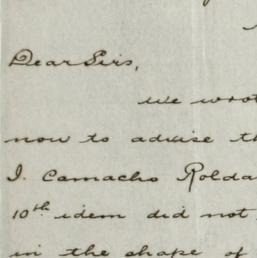 Dear Sirs,
We wrot
now to advise th
J. Camacho Rolda
10th idem did not
in the shape of